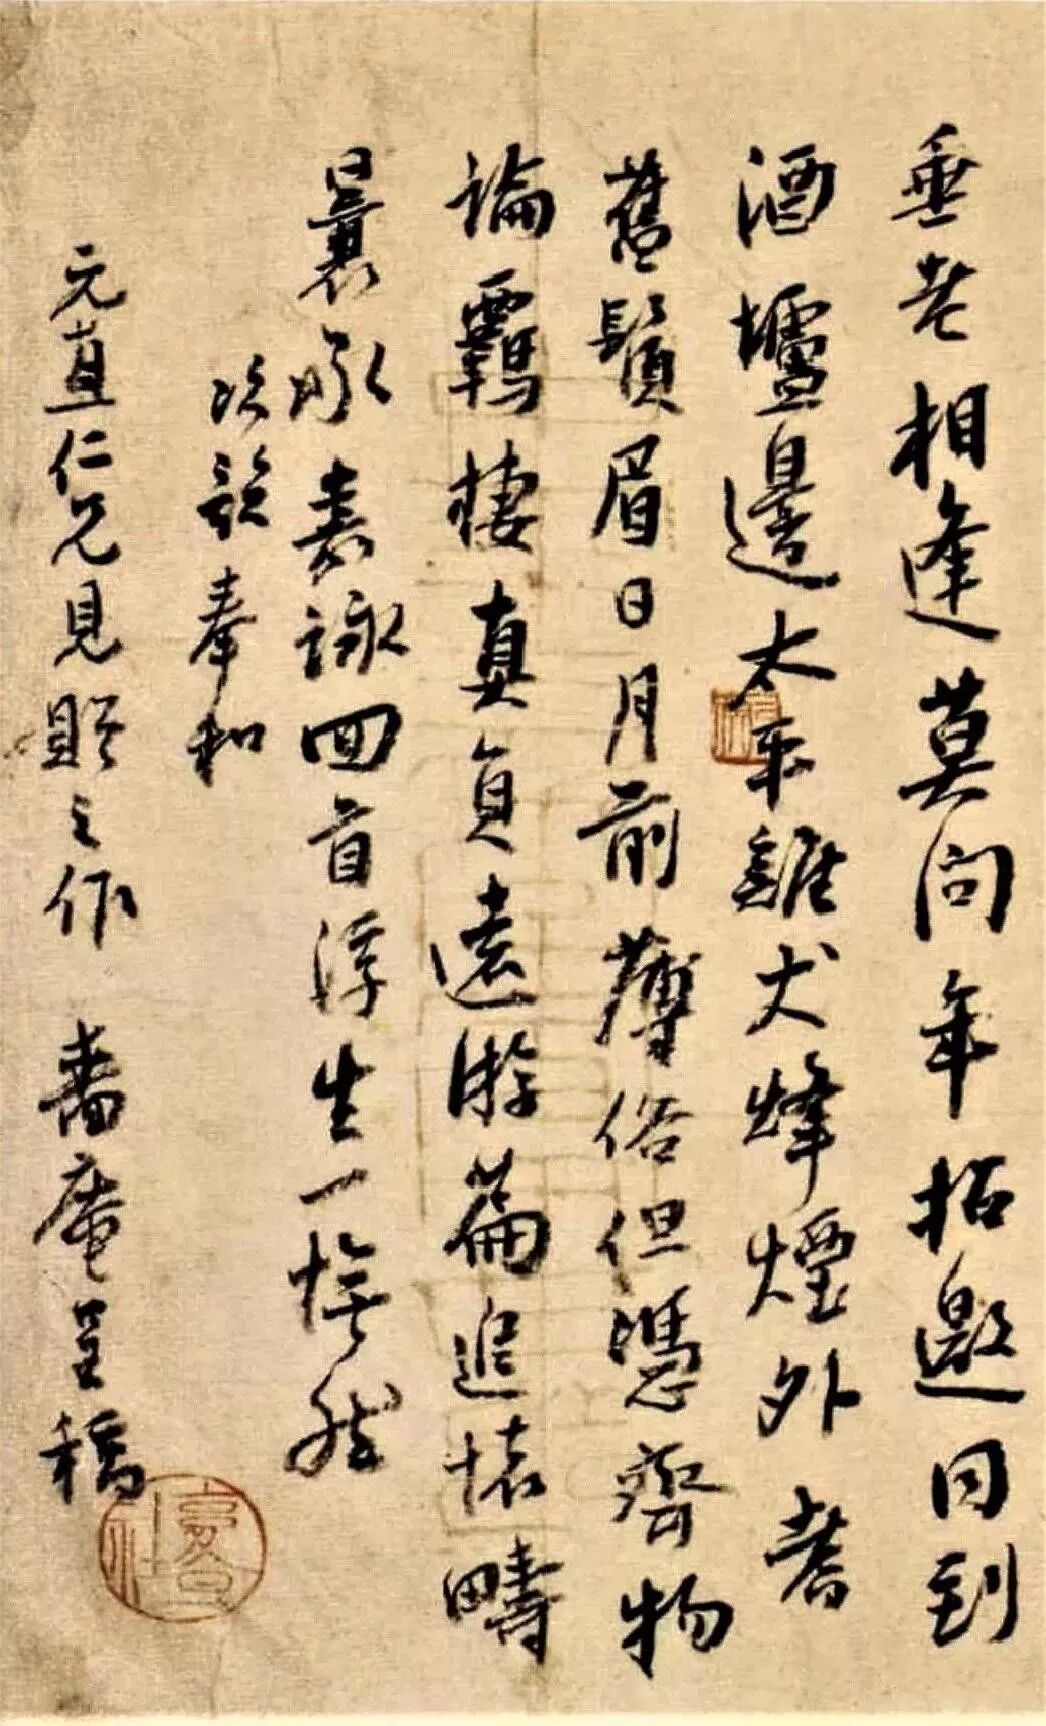 垂老相逢莫問年招邀同到
酒壚邊太平雞犬烽煙外耆
舊鬚眉日月前薄俗但憑齊物
論羈棲真負遠游篇追懷疇
曩承嘉詠回首浮生一憮然
次韵奉和
元直仁兄見貽之作 嗇庵呈稿